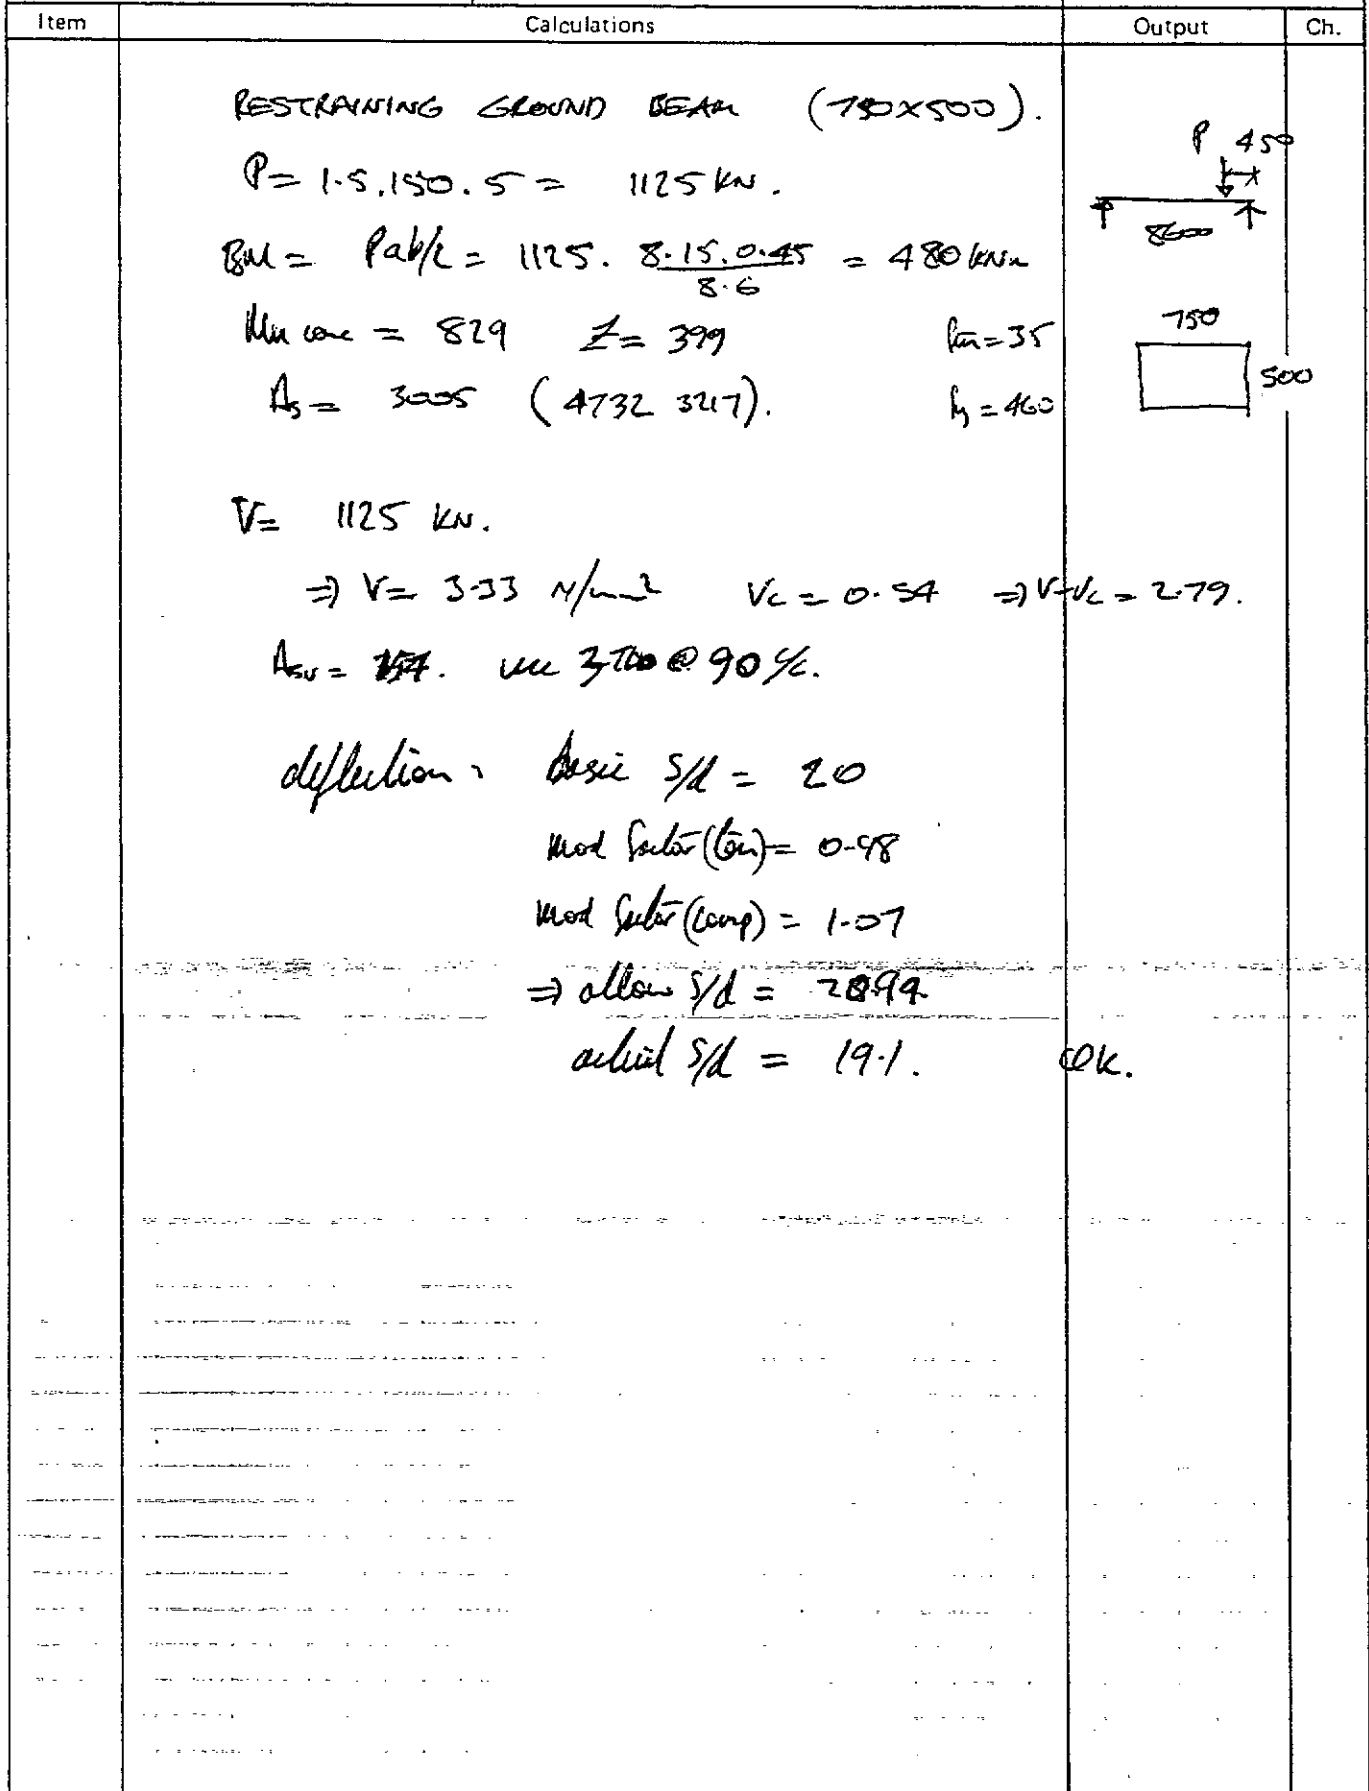 Item Calculations Output Ch.
RESTRAINING GROUND BEAM (750x500).
P = 1.5.150.5 = 1125 kN.
P 450
8600
BM = Pab/L = 1125. 8.15.0.45 / 8.6 = 480 kNm
Mu conc = 829 Z = 399 fcu = 35
750
500
As = 3005 (4T32 3217). fy = 460
V = 1125 kN.
⇒ v = 3.33 N/mm² vc = 0.54 ⇒ v-vc = 2.79.
Asv = use @ 90 c/c.
deflection: basic s/d = 20
mod factor (ten) = 0.98
mod factor (comp) = 1.07
⇒ allow s/d =
actual s/d = 19.1. OK.